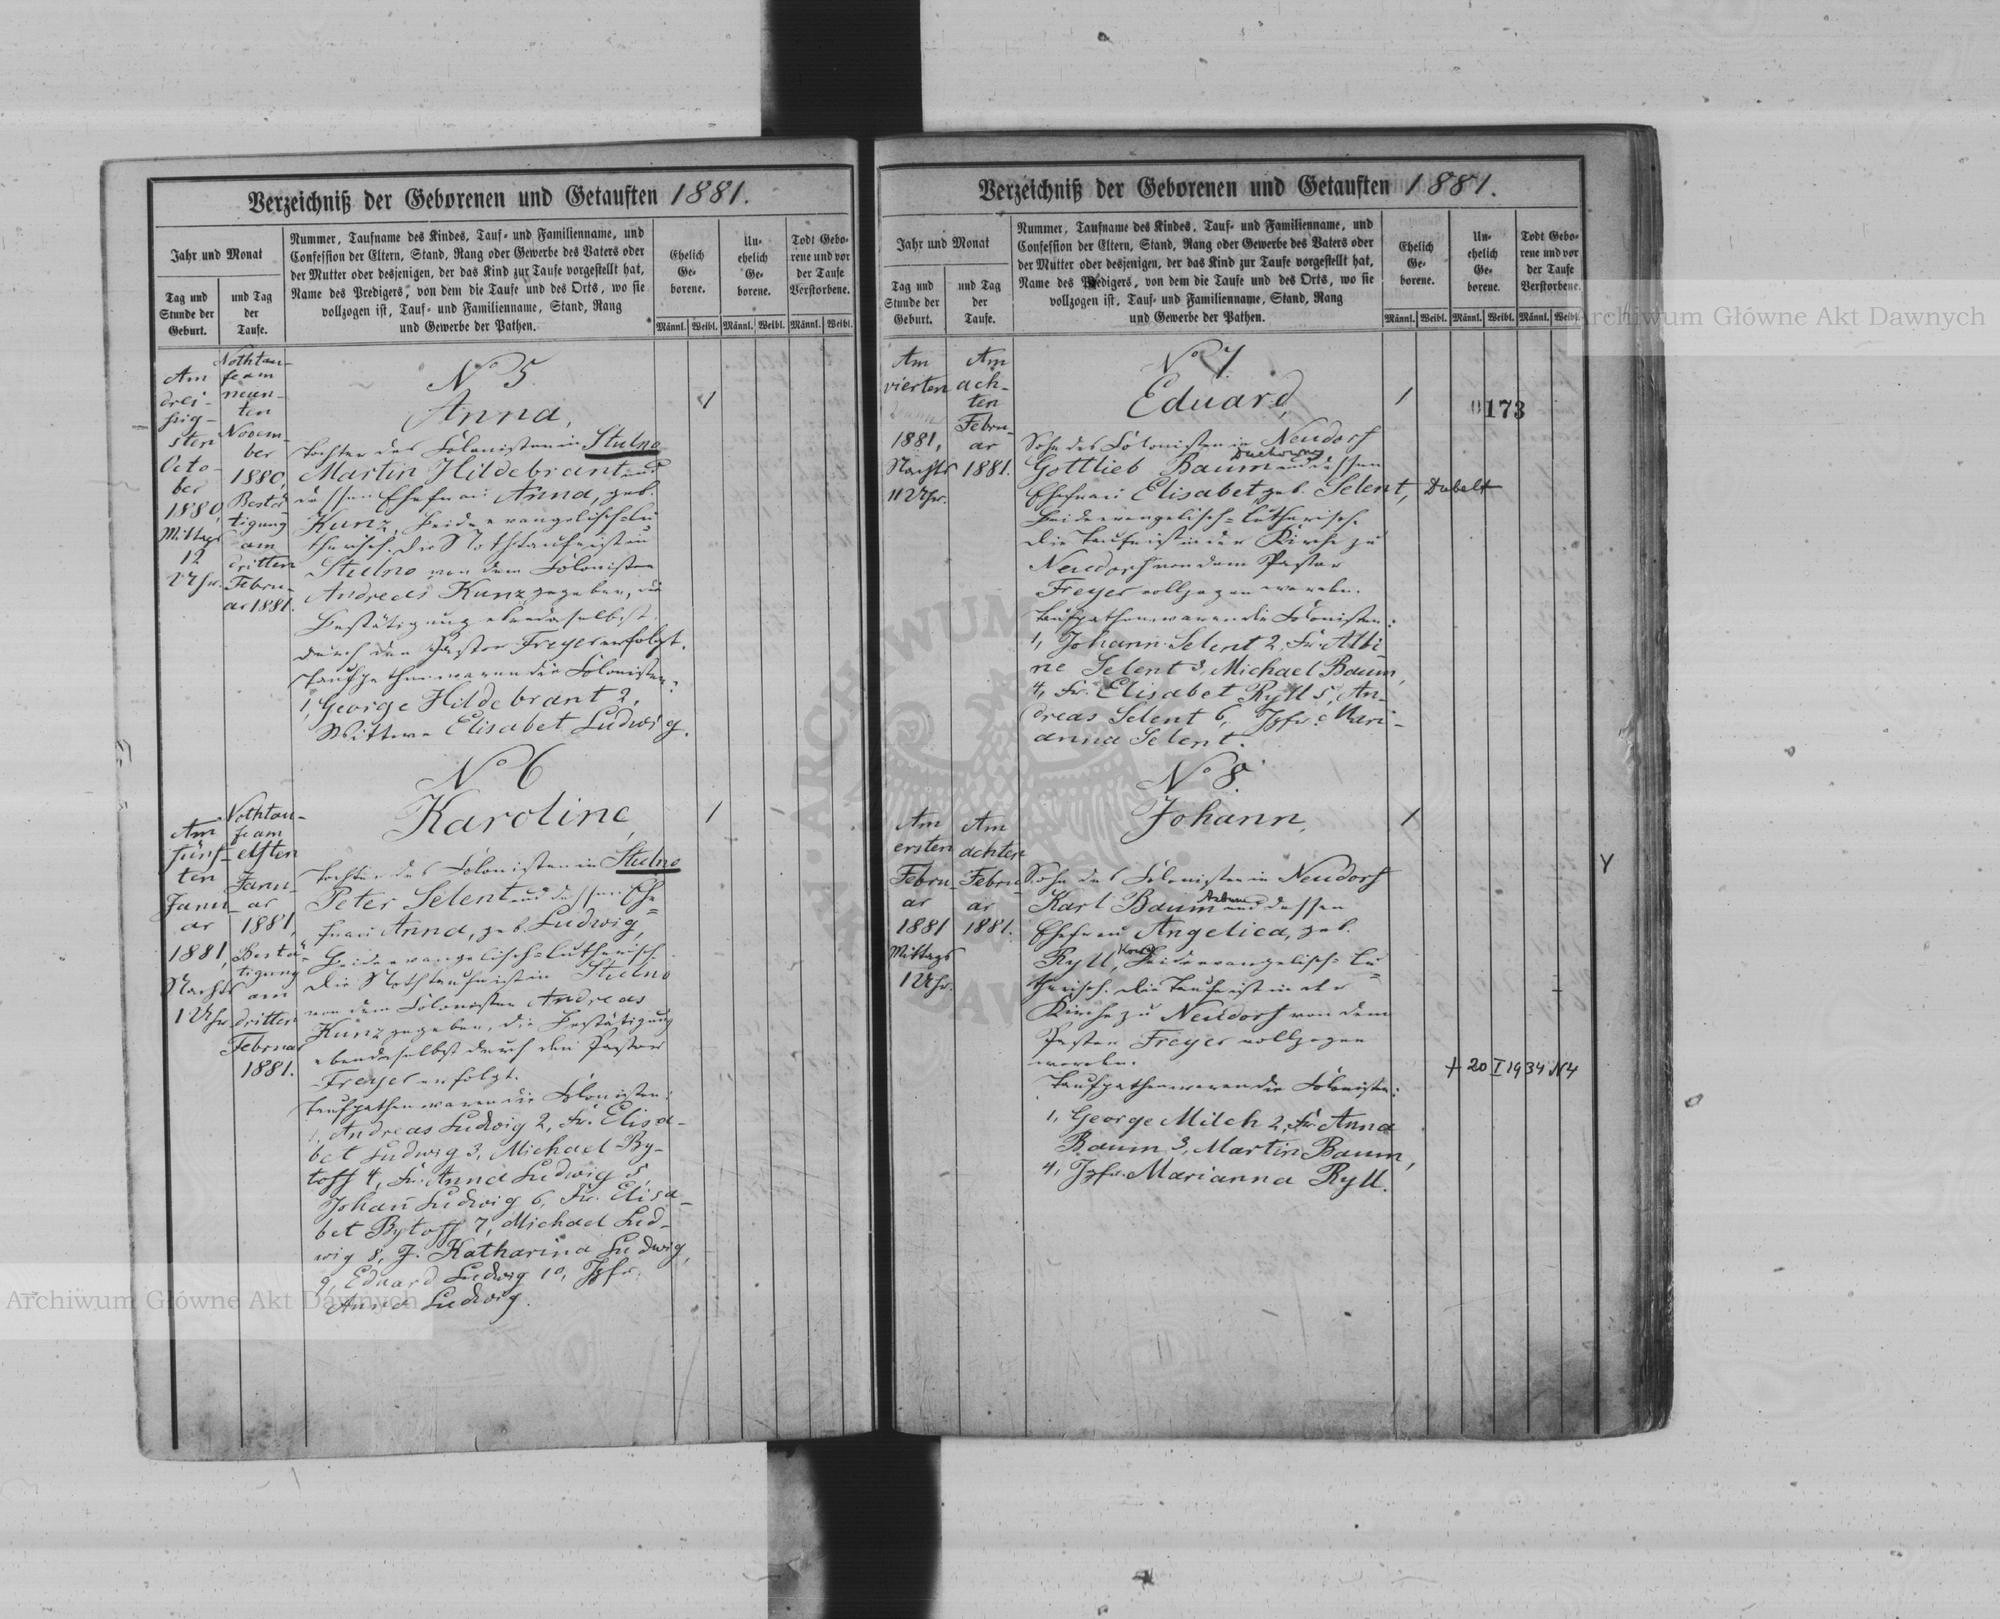 Verzeichniß der Geborenen und Getauften 1881.
Jahr und Monat
Tag und
Stunde der
Geburt.
und Tag
der
Taufe.
Nummer, Taufname des Kindes, Tauf- und Familienname, und
Confession der Eltern, Stand, Rang oder Gewerbe des Vaters oder
der Mutter oder desjenigen, der das Kind zur Taufe vorgestellt hat,
Name des Predigers, von dem die Taufe und des Orts, wo sie
vollzogen ist, Tauf- und Familienname, Stand, Rang
und Gewerbe der Pathen.
Ehelich
Ge-
borene.
Un-
ehelich
Ge-
borene.
Todt Gebo-
rene und vor
der Taufe
Verstorbene.
Männl. Weibl. Männl. Weibl. Männl. Weibl.
Am
drei-
ßig-
sten
Octo-
ber
1880,
Mittags
12
Uhr.
Nothtau-
fe am
neun-
ten
Novem-
ber
1880,
Bestä-
tigung
am
dritten
Febru-
ar 1881.
No 5.
Anna,
Tochter des Colonisten in Stulno
Martin Hildebrant und
dessen Ehefrau Anna, geb.
Kunz, Beide evangelisch-lu-
therisch. Die Nothtaufe ist in
Stulno von dem Colonisten
Andreas Kunz gegeben, die
Bestätigung ebendaselbst
durch den Pastor Freyer erfolgt.
Taufpathen waren die Colonisten:
1, George Hildebrant 2,
Wittwe Elisabet Ludwig.
1
Am
fünf-
ten
Janu-
ar
1881,
Nachts
1 Uhr
Nothtau-
fe am
elften
Janu-
ar
1881,
Bestä-
tigung
am
dritten
Februar
1881.
No 6
Karoline,
Tochter des Colonisten in Stulno
Peter Selent und dessen Ehe-
frau Anna, geb. Ludwig,
Beide evangelisch-lutherisch.
Die Nothtaufe ist in Stulno
von dem Colonisten Andreas
Kunz gegeben, die Bestätigung
ebendaselbst durch den Pastor
Freyer erfolgt.
Taufpathen waren die Colonisten:
1, Andreas Ludwig 2, Fr. Elisa-
bet Ludwig 3, Michael By-
toff 4, Fr. Anna Ludwig 5,
Johan̄ Ludwig 6, Fr. Elisa-
bet Bytoff 7, Michael Lud-
wig 8, J. Katharina Ludwig,
9, Eduard Ludwig 10, Jgfr.
Anna Ludwig.
1
Verzeichniß der Geborenen und Getauften 1881.
Jahr und Monat
Tag und
Stunde der
Geburt.
und Tag
der
Taufe.
Nummer, Taufname des Kindes, Tauf- und Familienname, und
Confession der Eltern, Stand, Rang oder Gewerbe des Vaters oder
der Mutter oder desjenigen, der das Kind zur Taufe vorgestellt hat,
Name des Predigers, von dem die Taufe und des Orts, wo sie
vollzogen ist, Tauf- und Familienname, Stand, Rang
und Gewerbe der Pathen.
Ehelich
Ge-
borene.
Un-
ehelich
Ge-
borene.
Todt Gebo-
rene und vor
der Taufe
Verstorbene.
Männl. Weibl. Männl. Weibl. Männl. Weibl.
Am
vierten
1881,
Nachts
11 Uhr.
Am
ach-
ten
Febru-
ar
1881.
No 7
Eduard,
Sohn des Colonisten in Neudorf
Gottlieb Baum und dessen
Ehefrau Elisabet, geb. Selent,
Dubelt
Beide evangelisch-lutherisch.
Die Taufe ist in der Kirche zu
Neudorf von dem Pastor
Freyer vollzogen worden.
Taufpathen waren die Colonisten:
1, Johann Selent 2, Fr. Albi-
ne Selent 3, Michael Baum,
4, Fr. Elisabet Ryll 5, An-
dreas Selent 6, Jgfr. Mari-
anna Selent.
1
173
Am
ersten
Febru-
ar
1881
Mittags
1 Uhr.
Am
achten
Febru-
ar
1881.
No 8.
Johann,
Sohn des Colonisten in Neudorf
Karl Baum und dessen
Ehefrau Angelica, geb.
Ryll, Beide evangelisch-lu-
therisch. Die Taufe ist in der
Kirche zu Neudorf von dem
Pastor Freyer vollzogen
worden.
Taufpathen waren die Colonisten:
1, George Milch 2, Fr. Anna
Baum 3, Martin Baum,
4, Jgfr. Marianna Ryll.
1
Y
+ 20 I 1934 N4
Archiwum Główne Akt Dawnych
Archiwum Główne Akt Dawnych